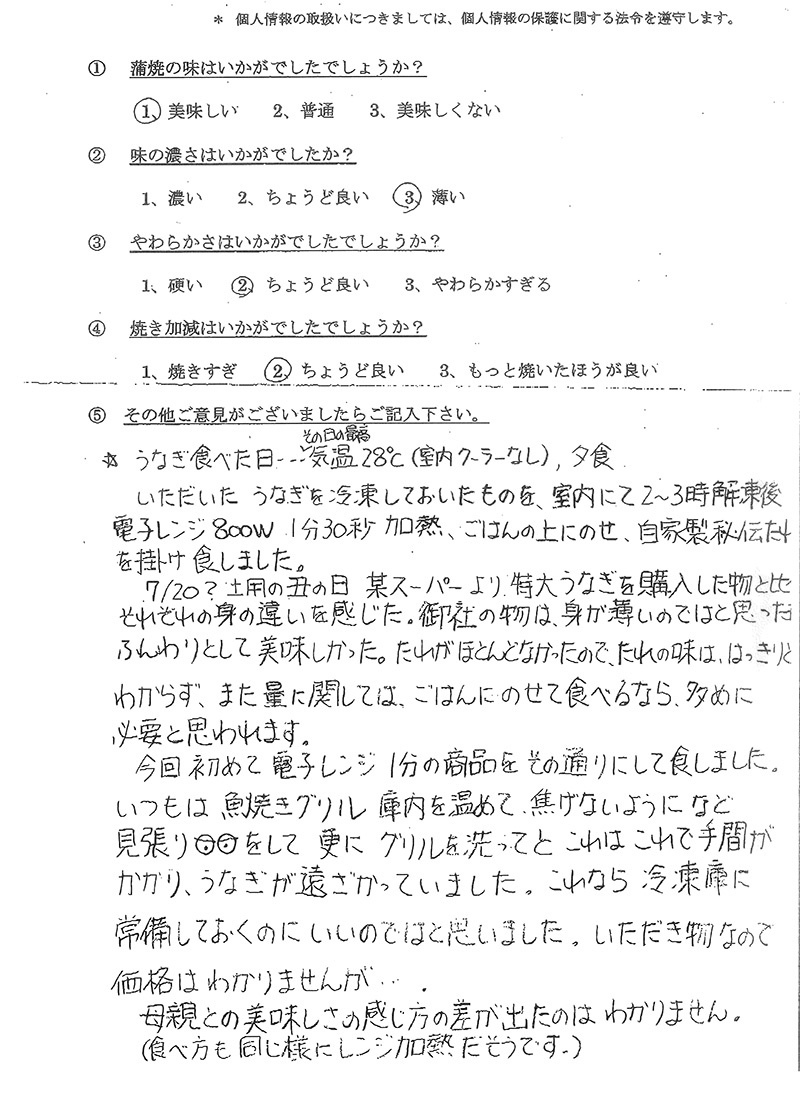 ＊ 個人情報の取扱いにつきましては、個人情報の保護に関する法令を遵守します。
① 蒲焼の味はいかがでしたでしょうか？
1、美味しい 2、普通 3、美味しくない
② 味の濃さはいかがでしたか？
1、濃い 2、ちょうど良い 3、薄い
③ やわらかさはいかがでしたでしょうか？
1、硬い 2、ちょうど良い 3、やわらかすぎる
④ 焼き加減はいかがでしたでしょうか？
1、焼きすぎ 2、ちょうど良い 3、もっと焼いたほうが良い
⑤ その他ご意見がございましたらご記入下さい。
その日の最高
☆ うなぎ食べた日…気温28℃(室内クーラーなし)，夕食
いただいた うなぎを冷凍しておいたものを、室内にて2～3時解凍後
電子レンジ 800W 1分30秒 加熱、ごはんの上にのせ、自家製秘伝たれ
を掛け 食しました。
7/20？ 土用の丑の日 某スーパーより 特大うなぎを購入した物と比
それぞれの身の違いを感じた。御社の物は、身が薄いのではと思った
ふんわりとして 美味しかった。たれがほとんどなかったので、たれの味は、はっきりと
わからず、また 量に関しては、ごはんにのせて食べるなら、多めに
必要と思われます。
今回 初めて 電子レンジ 1分の商品をその通りにして食しました。
いつもは 魚焼きグリル 庫内を温めて、焦げないように など
見張り⊙⊙をして 更に グリルを洗ってと これは これで手間が
かかり、うなぎが遠ざかっていました。これなら 冷凍庫に
常備しておくのに いいのではと思いました。いただき物なので
価格は わかりませんが…．
母親との美味しさの感じ方の差が出たのは わかりません。
(食べ方も 同じ様にレンジ加熱 だそうです。)